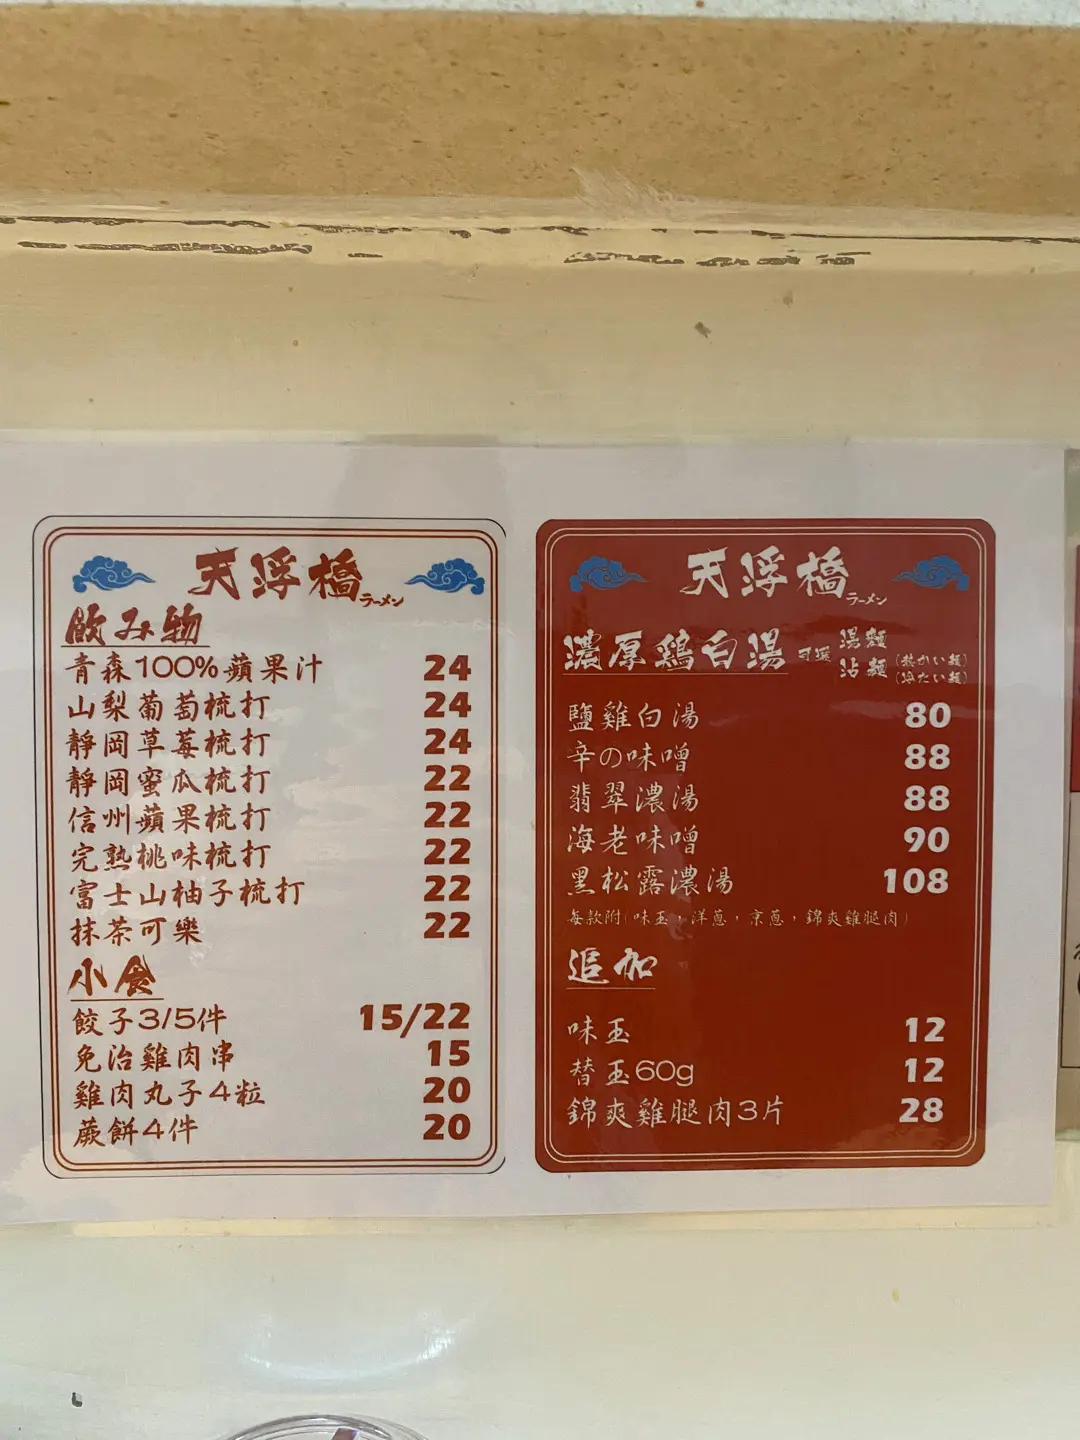 天浮橋
ラーメン
飲み物
青森100%蘋果汁 24
山梨葡萄梳打 24
靜岡草莓梳打 24
靜岡蜜瓜梳打 22
信州蘋果梳打 22
完熟桃味梳打 22
富士山柚子梳打 22
抹茶可樂 22
小食
餃子3/5件 15/22
免治雞肉串 15
雞肉丸子4粒 20
蕨餅4件 20
天浮橋
ラーメン
濃厚鶏白湯 可選 湯麵
沾麵
鹽雞白湯 80
辛の味噌 88
翡翠濃湯 88
海老味噌 90
黑松露濃湯 108
每款附(味玉,洋蔥,京蔥,錦爽雞腿肉)
追加
味玉 12
替玉60g 12
錦爽雞腿肉3片 28